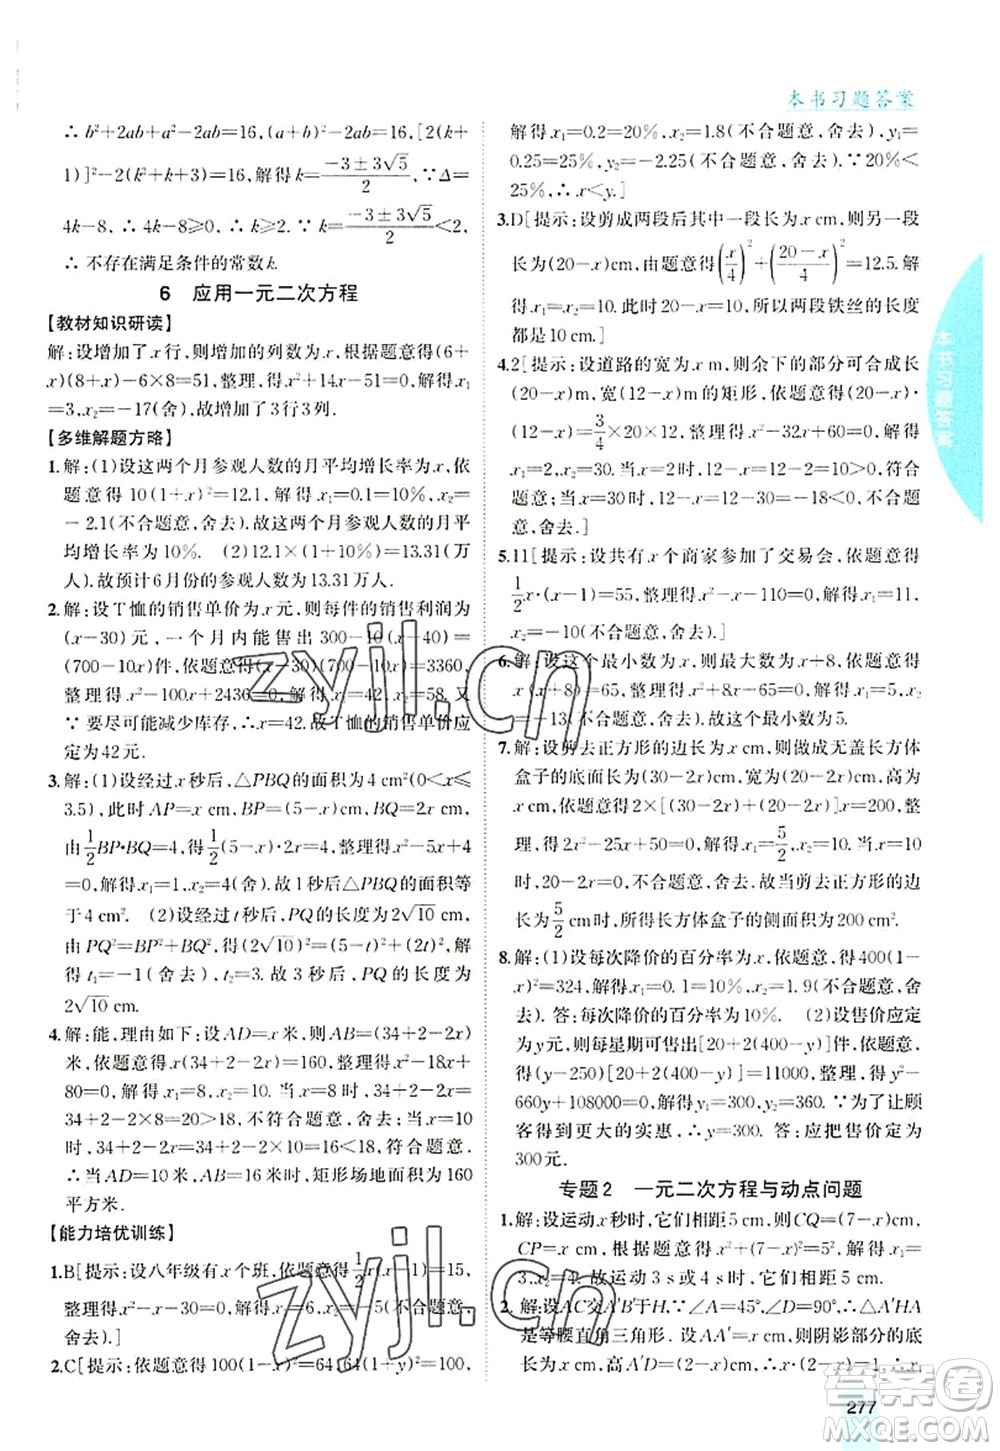 本书习题答案
∴ b²+2ab+a²-2ab=16,(a+b)²-2ab=16,[2(k+
1)]²-2(k²+4k+3)=16,解得k=(-3±3√5)/2,∵Δ=
4k-8,∴4k-8≥0,∴k≥2,∵k=(-3±3√5)/2<2,
∴ 不存在满足条件的常数k.
6 应用一元二次方程
【教材知识研读】
解:设增加了x行,则增加的列数为x,根据题意得(6+
x)(8+x)-6×8=51,整理,得x²+14x-51=0,解得x₁
=3,x₂=-17(舍).故增加了3行3列.
【多维解题方略】
1.解:(1)设这两个月参观人数的月平均增长率为x,依
题意得10(1+x)²=12.1,解得x₁=0.1=10%,x₂=
-2.1(不合题意,舍去).故这两个月参观人数的月平
均增长率为10%. (2)12.1×(1+10%)=13.31(万
人).故预计6月份的参观人数为13.31万人.
2.解:设T恤的销售单价为x元,则每件的销售利润为
(x-30)元,一个月内能售出300-10(x-40)=
(700-10x)件,依题意得(x-30)(700-10x)=3360,
整理得x²-100x+2436=0,解得x₁=42,x₂=58,又
∵ 要尽可能减少库存,∴x=42.故T恤的销售单价应
定为42元.
3.解:(1)设经过x秒后,△PBQ的面积为4(0<x≤
3.5),此时AP=x cm,BP=(5-x)cm,BQ=2x cm,
由1/2BP·BQ=4,得1/2(5-x)·2x=4,整理得x²-5x+4
=0,解得x₁=1,x₂=4(舍去).故1秒后△PBQ的面积等
于4 cm². (2)设经过t秒后,PQ的长度为2√10 cm,
由PQ²=BP²+BQ²,得(2√10)²=(5-t)²+(2t)²,解
得t₁=-1(舍去),t₂=3.故3秒后,PQ的长度为
2√10 cm.
4.解:能,理由如下:设AD=x米,则AB=(34+2-2x)
米,依题意得x(34+2-2x)=160,整理得x²-18x+
80=0,解得x₁=8,x₂=10.当x=8时,34+2-2x=
34+2-2×8=20>18,不符合题意,舍去;当x=10
时,34+2-2x=34+2-2×10=16<18,符合题意.
∴当AD=10米时,矩形场地面积为160
平方米.
【能力培优训练】
1.B[提示:设八年级有x个班.依题意得1/2x(x-1)=15,
整理得x²-x-30=0,解得x₁=6,x₂=-5(不合题意,
舍去).]
2.C[提示:依题意得100(1-x)²=64,64(1+y)²=100,
解得x₁=0.2=20%,x₂=1.8(不合题意,舍去).y₁=
0.25=25%,y₂=-2.25(不合题意,舍去).∵20%<
25%,∴x<y.]
3.D[提示:设剪成两段后其中一段长为x cm,则另一段
长为(20-x)cm,由题意得(x/4)²+((20-x)/4)²=12.5.解得
x₁=x₂=10.此时20-x=10,所以两段铁丝的长度
都是10 cm.]
4.2[提示:设道路的宽为x m,则余下的部分可合成长
(20-x)m,宽(12-x)m的矩形,依题意得(20-x)·
(12-x)=3/4×20×12,整理得x²-32x+60=0,解得
x₁=2,x₂=30.当x=2时,12-x=12-2=10>0,符合
题意;当x=30时,12-x=12-30=-18<0,不符合题
意,舍去.]
5.11[提示:设共有x个商家参加了交易会,依题意得
1/2x·(x-1)=55,整理得x²-x-110=0,解得x₁=11,
x₂=-10(不合题意,舍去).]
6.解:设这个最小数为x,则最大数为x+8,依题意得
x(x+8)=65,整理得x²+8x-65=0,解得x₁=5,x₂
=-13(不合题意,舍去).故这个最小数为5.
7.解:设剪去正方形的边长为x cm,则做成无盖长方体
盒子的底面长为(30-2x)cm,宽为(20-2x)cm,高为
x cm,依题意得2×[(30-2x)+(20-2x)]x=200,整
理,得2x²-25x+50=0,解得x₁=5/2,x₂=10.当x=10
时,20-2x=0,不合题意,舍去.故当剪去正方形的边长为
5/2 cm时,所得长方体盒子的侧面积为200 cm².
8.解:(1)设每次降价的百分率为x,依题意得400(1-
x)²=324,解得x₁=0.1=10%,x₂=1.9(不合题意,
舍去). 答:每次降价的百分率为10%. (2)设售价应
为y元,则每星期可售出[20+2(300-y)]件,依题意得
(y-250)[20+2(300-y)]=1000,整理,得y²-
660y+108000=0,解得y₁=300,y₂=360.∵为了让顾
客得到更大的实惠,∴y=300. 答:应把售价定为
300元.
专题2 一元二次方程与动点问题
1.解:设运动x秒时,它们相距5 cm,则CQ=(7-x)cm,
CP=x cm,根据题意,得x²+(7-x)²=5²,解得x₁=
3,x₂=4.故运动3 s或4 s时,它们相距5 cm.
2.解:设AC交A′B′于H,∵∠A=45°,∠D=90°,∴△A′HA
是等腰直角三角形.设AA′=x cm,则阴影部分的底
长为x cm,高A′D=(2-x)cm,∴x·(2-x)=1,∴x₁
277